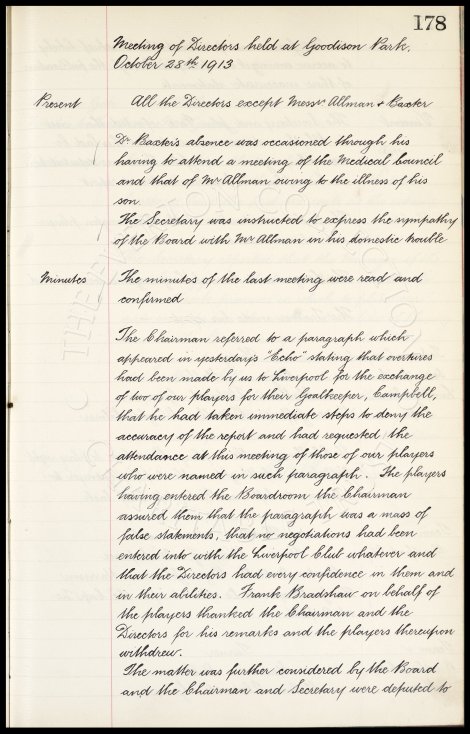 178
Meeting of Directors held at Goodison Park,
October 28th 1913
Present All the Directors except Messrs Allman & Baxter
Dr Baxter's absence was occasioned through his
having to attend a meeting of the Medical Council
and that of Mr Allman owing to the illness of his
son
The Secretary was instructed to express the sympathy
of the Board with Mr Allman in his domestic trouble
Minutes The minutes of the last meeting were read and
confirmed
The Chairman referred to a paragraph which
appeared in yesterday's "Echo" stating that overtures
had been made by us to Liverpool for the exchange
of two of our players for their Goalkeeper, Campbell,
that he had taken immediate steps to deny the
accuracy of the report and had requested the
attendance at this meeting of those of our players
who were named in such paragraph. The players
having entered the Boardroom the Chairman
assured them that the paragraph was a mass of
false statements, that no negotiations had been
entered into with the Liverpool Club whatever and
that the Directors had every confidence in them and
in their abilities. Frank Bradshaw on behalf of
the players thanked the Chairman and the
Directors for his remarks and the players thereupon
withdrew.
The matter was further considered by the Board
and the Chairman and Secretary were deputed to